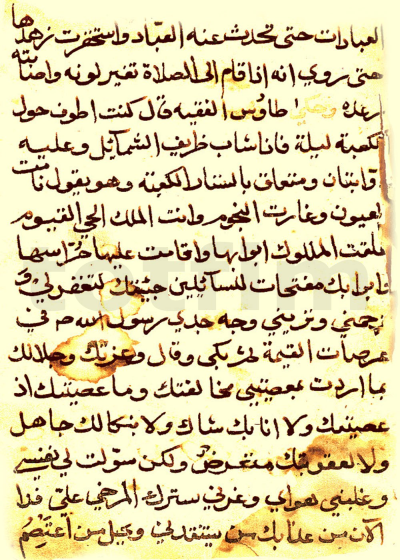 العبادات حتى تحدث عنه العباد واستحقرت زهدها
حتى روي انه اذا قام الى الصلاة تغير لونه واصابته
رعده وحكى طاوس الفقيه قال كنت اطوف حول
لكعبة ليلة فاذا شاب ظريف الشمائل وعليه
ذوابتان ومتعلق باستار الكعبة وهو يقول نامت
لعيون وغارت النجوم وانت الملك الحي القيوم
غلقت الملوك ابوابها واقامت عليها حراسها
وابوابك مفتحات للسائلين جئتك لتغفر لي و
ترحمني وتريني وجه جدي رسول الله ص في
عرصات القيمة ثم بكى وقال وعزتك وجلالك
ما اردت بمعصيتي مخالفتك وما عصيتك اذ
عصيتك ولا انا بك شاك ولا بنكالك جاهل
ولا لعقوبتك متعرض ولكن سولت لي نفسي
وغلبني هواي وغرني سترك المرخى علي فا
الآن من عذابك من يستنقذني وبحبل من اعتصم